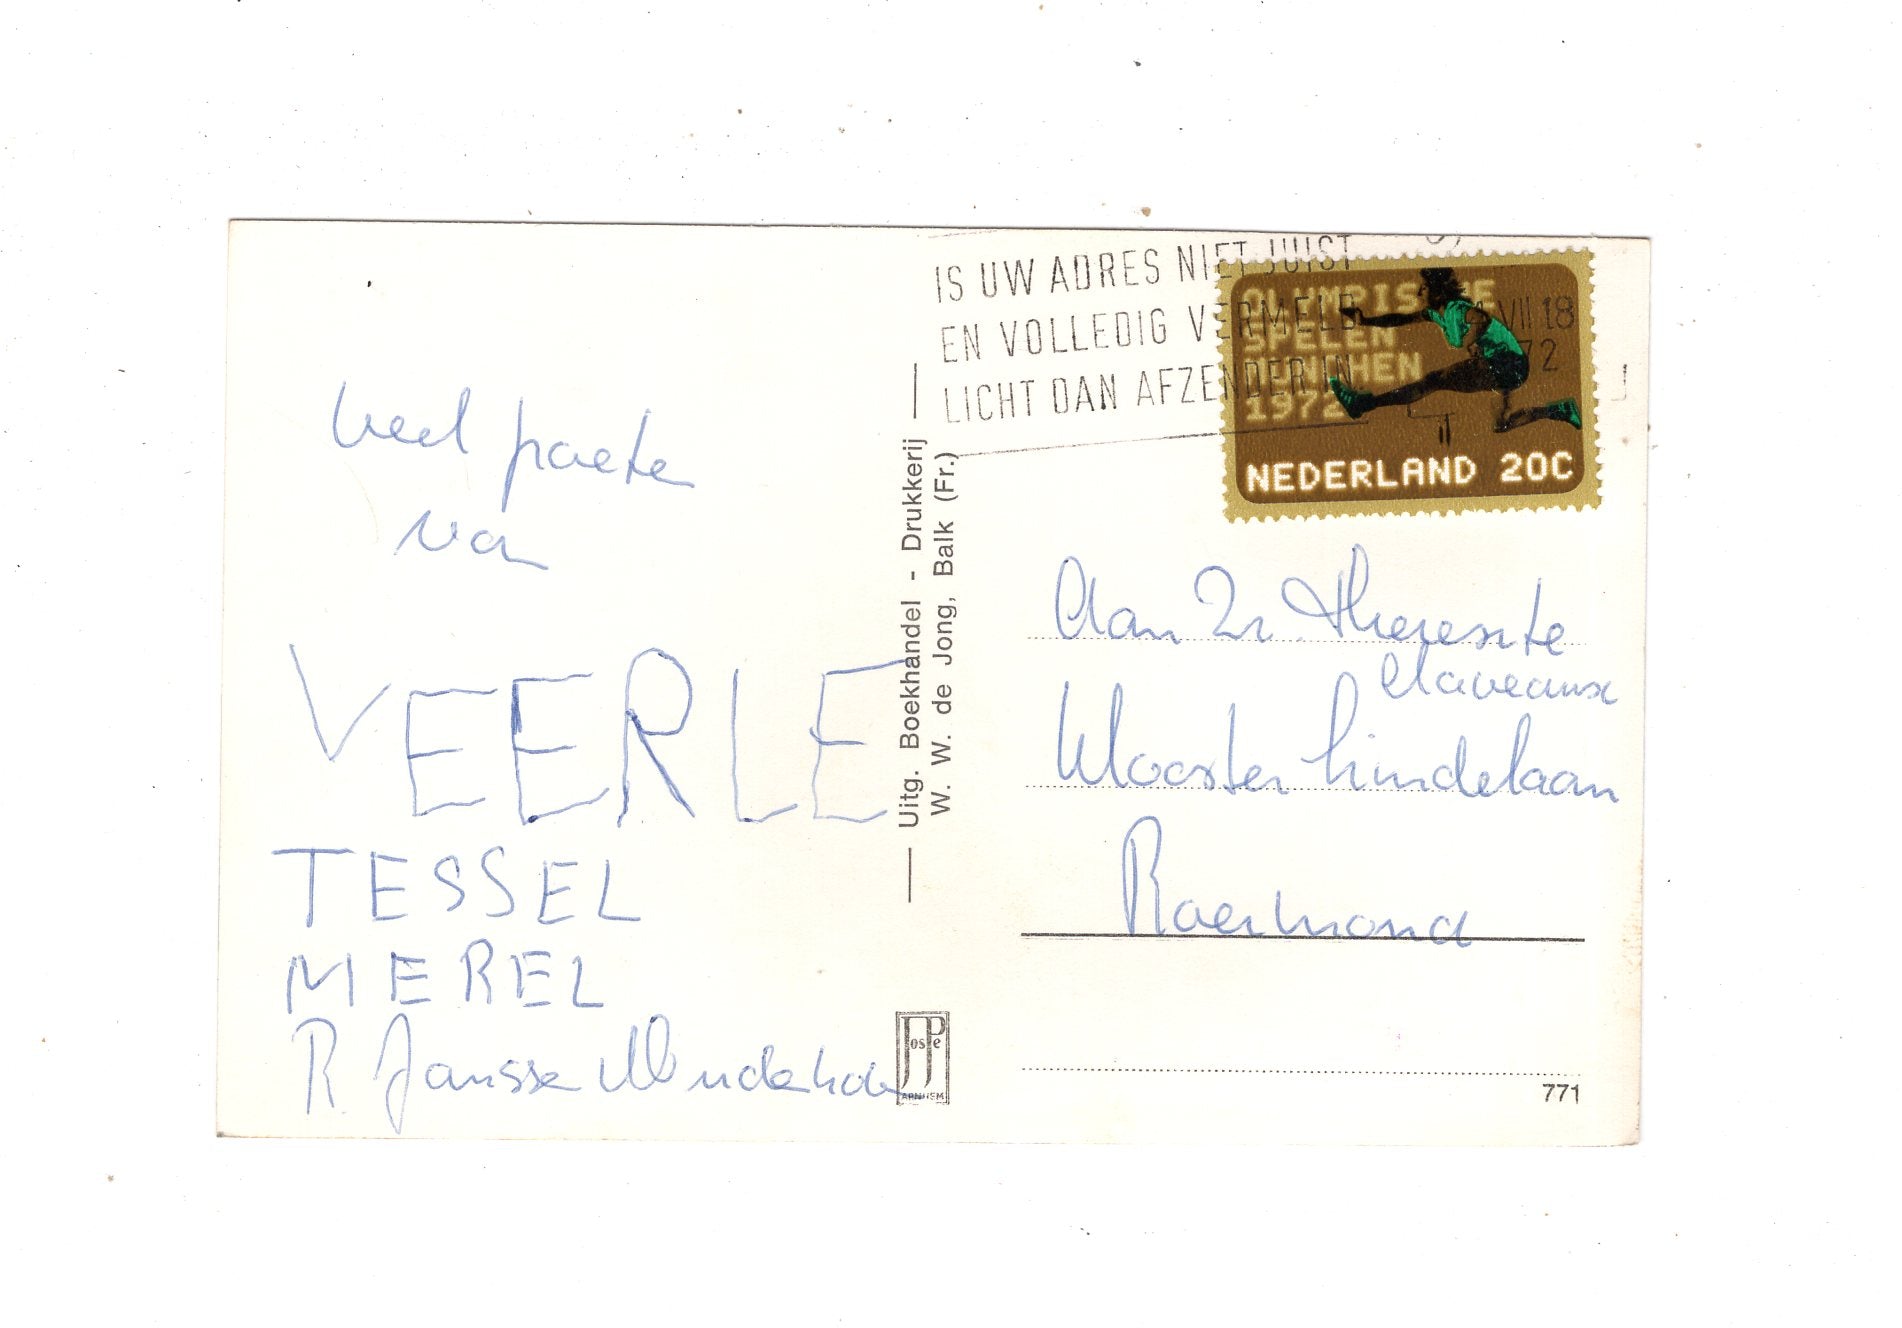 IS UW ADRES NIET JUIST
EN VOLLEDIG VERMELD
LICHT DAN AFZENDER IN
VII 18
72
OLYMPISCHE
SPELEN
MUNCHEN
1972
NEDERLAND 20C
veel
van
VEERLE
TESSEL
MEREL
R Jansse
Uitg. Boekhandel - Drukkerij
W. W. de Jong, Balk (Fr.)
Aan Zr. Theresite
Claveaux
Klooster Lindelaan
Roermond
JosPe
ARNHEM
771